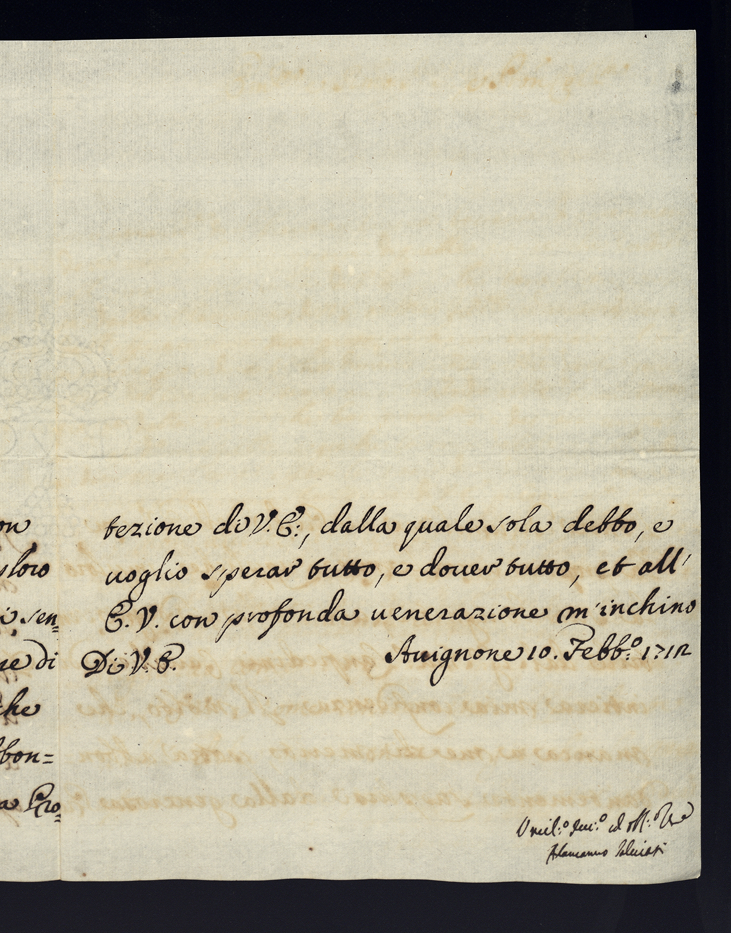 on
loro
i sen=
ne di
he
bon=
a Pro=
tezione di V. E:, dalla quale sola debbo, e
uoglio sperar tutto, e douer tutto, et all'
E. V. con profonda uenerazione m'inchino
Di V. E. Auignone 10. Febb.º 1712
Vmil:º deu:º ed obl:º
Alamanno Saluiati